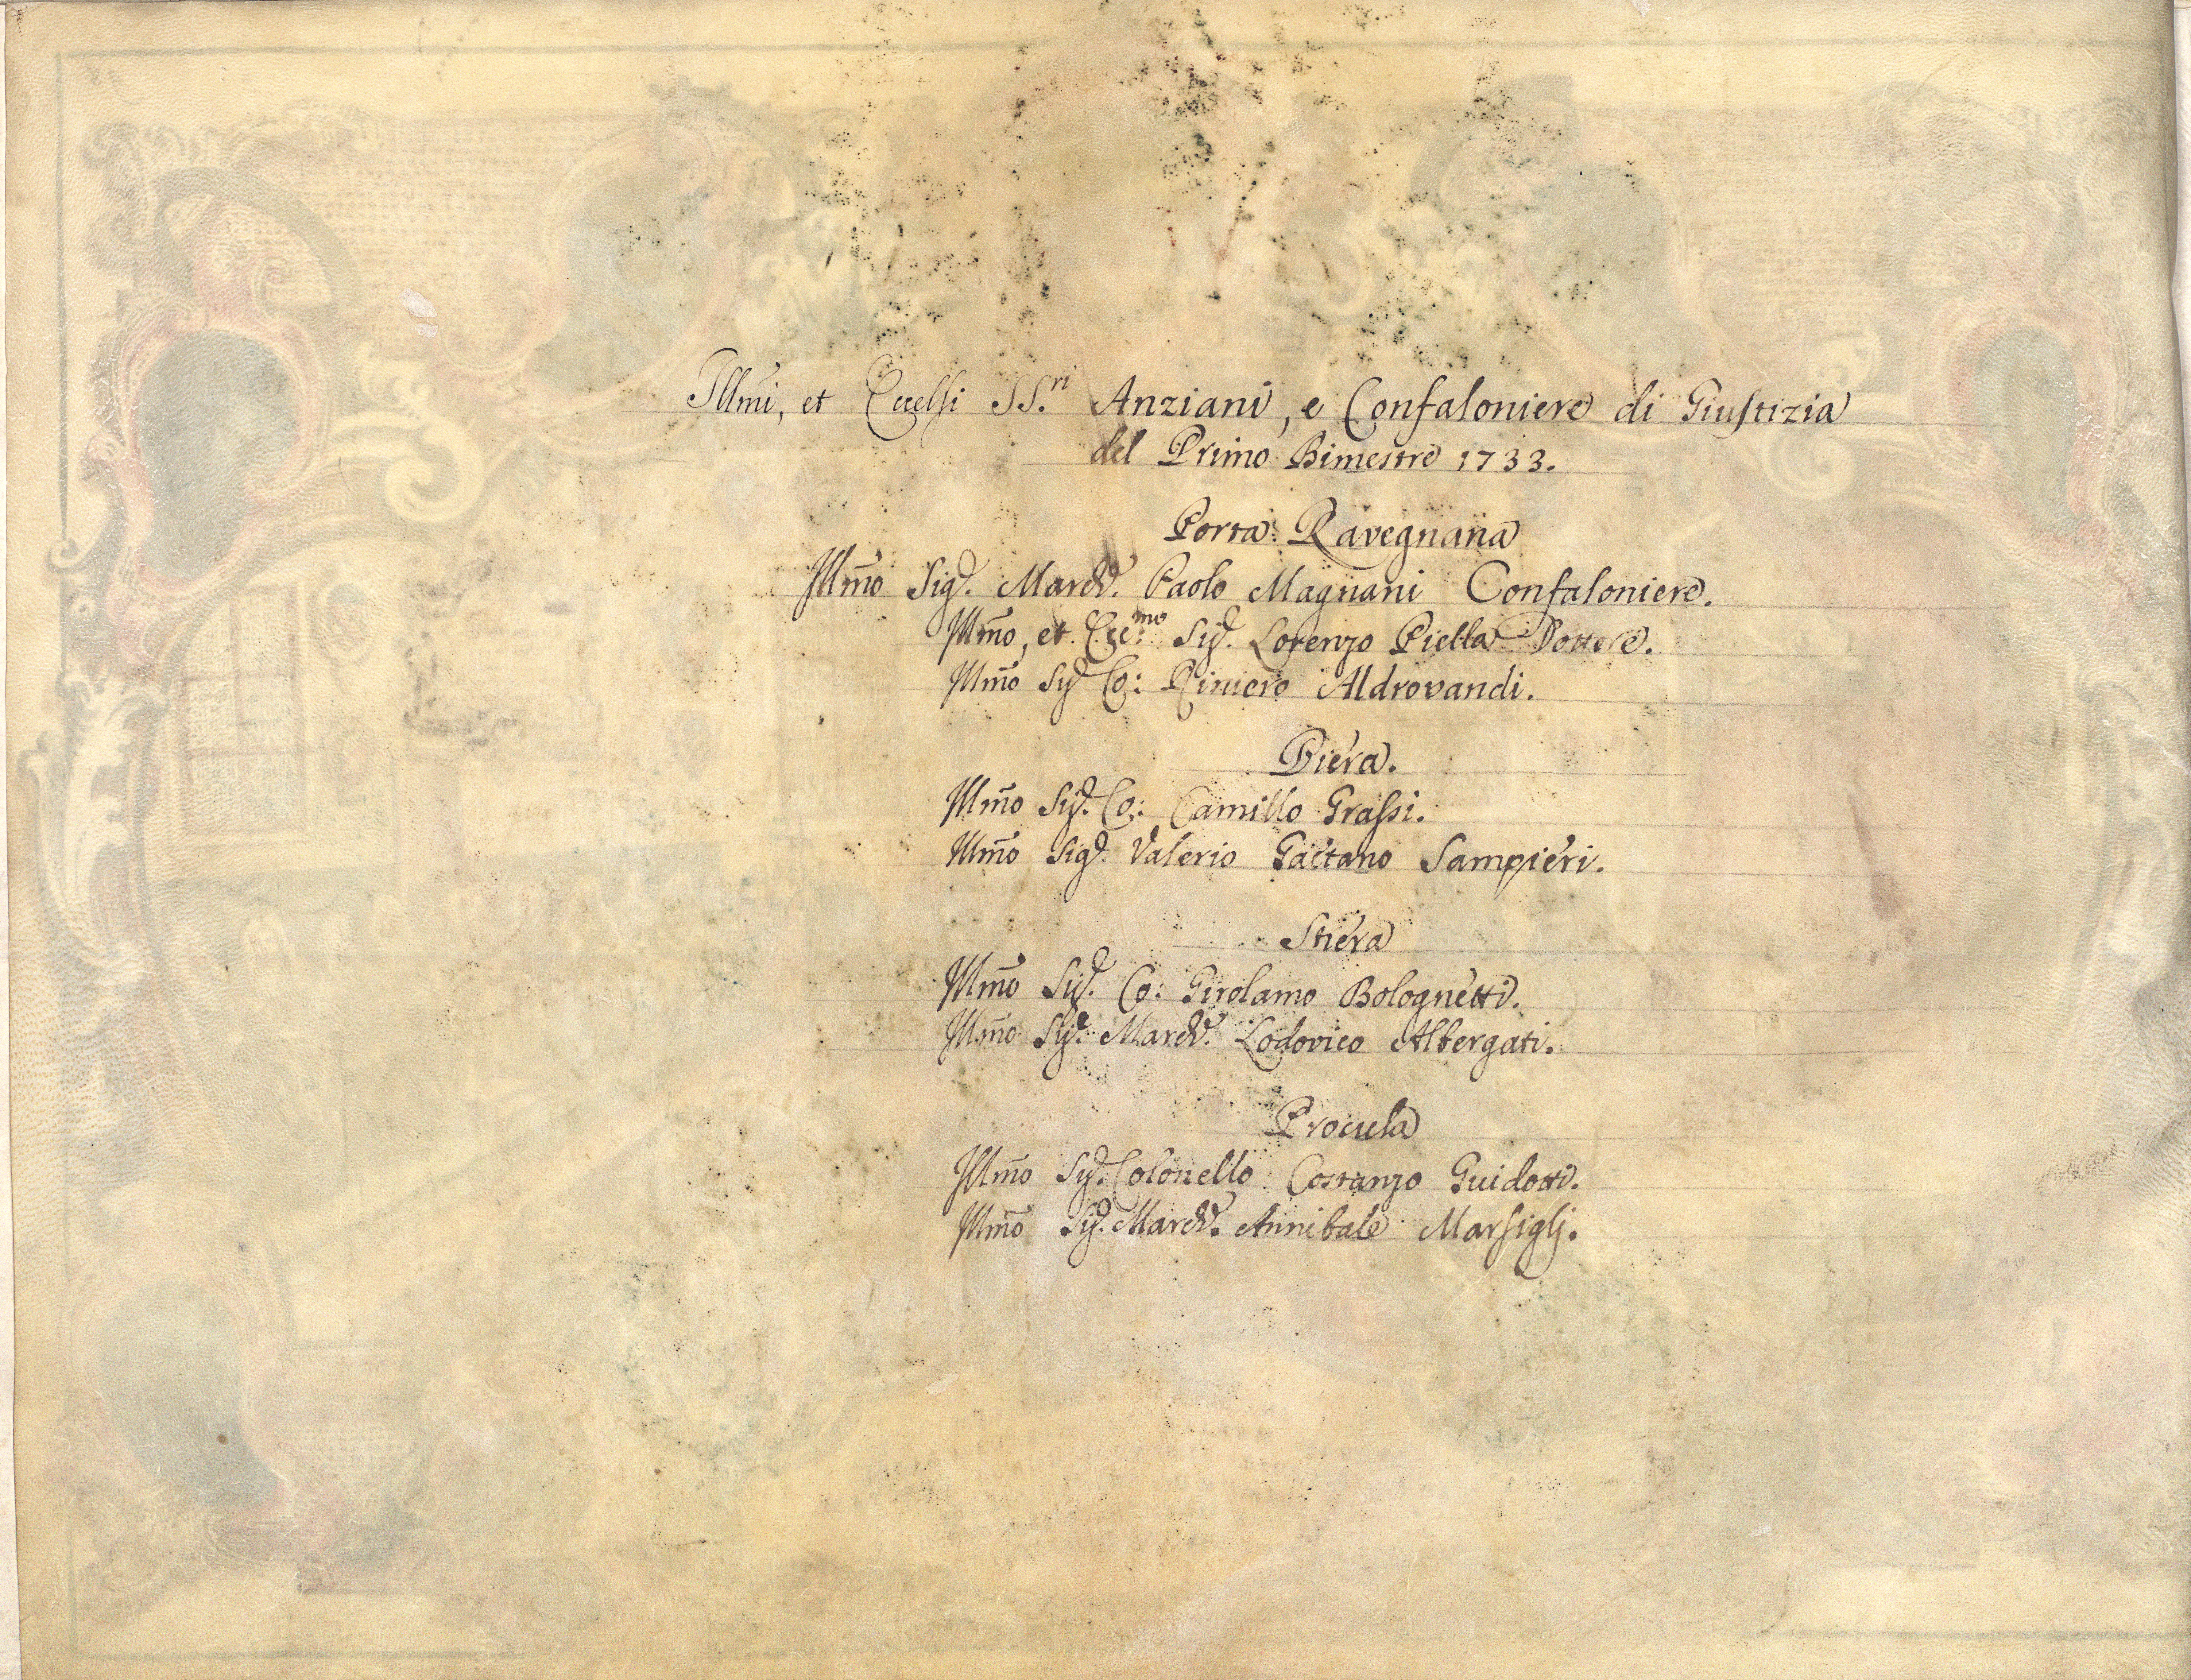 Illm̃i, et Eccelsi SS.ri Anziani, e Confaloniere di Giustizia
del Primo Bimestre 1733.
Porta Ravegnana
Illm̃o Sig.r March.e Paolo Magnani Confaloniere.
Illm̃o, et Ecc.mo Sig.r Lorenzo Piella Dottore.
Illm̃o Sig.r Co: Riniero Aldrovandi.
Piera.
Illm̃o Sig.r Co: Camillo Grassi.
Illm̃o Sig.r Valerio Gaetano Sampieri.
Stiera
Illm̃o Sig.r Co: Girolamo Bolognetti.
Illm̃o Sig.r March.e Lodovico Albergati.
Procula
Illm̃o Sig.r Colonello Costanzo Guidotti.
Illm̃o Sig.r March.e Annibale Marsiglj.